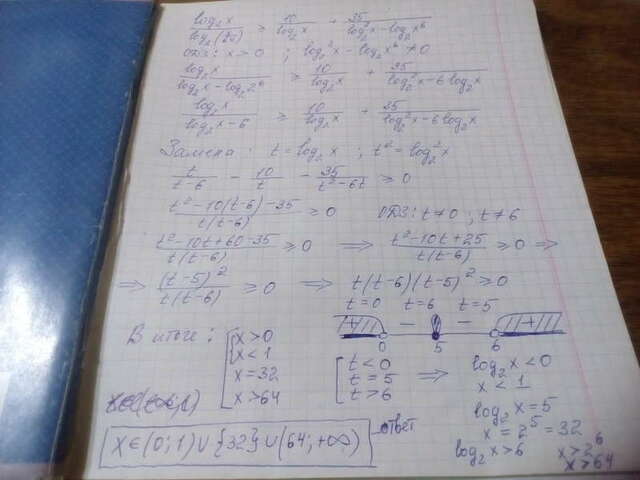 log₂x / log₂(x/2⁶) ≥ 10 / log₂x + 35 / log₂²x - log₂x⁶
ОДЗ: x > 0 ; log₂²x - log₂x⁶ ≠ 0
log₂x / log₂x - log₂2⁶ ≥ 10 / log₂x + 35 / log₂²x - 6 log₂x
log₂x / log₂x - 6 ≥ 10 / log₂x + 35 / log₂²x - 6 log₂x
Замена: t = log₂x ; t² = log₂²x
t / t-6 - 10 / t - 35 / t²-6t ≥ 0
t²-10(t-6)-35 / t(t-6) ≥ 0 ОДЗ: t ≠ 0 ; t ≠ 6
t²-10t+60-35 / t(t-6) ≥ 0 ⟹ t²-10t+25 / t(t-6) ≥ 0 ⟹
⟹ (t-5)² / t(t-6) ≥ 0 ⟹ t(t-6)(t-5)² ≥ 0
t=0 t=6 t=5
+ - - +
0 5 6
В итоге: [ x > 0
x < 1
x = 32
x > 64
[ t < 0
t = 5
t > 6
⟹ log₂x < 0
x < 1
log₂x = 5
x = 2⁵ = 32
log₂x > 6 x > 2⁶
x > 64
x∈(0;1)∪{32}∪(64;+∞) - ответ